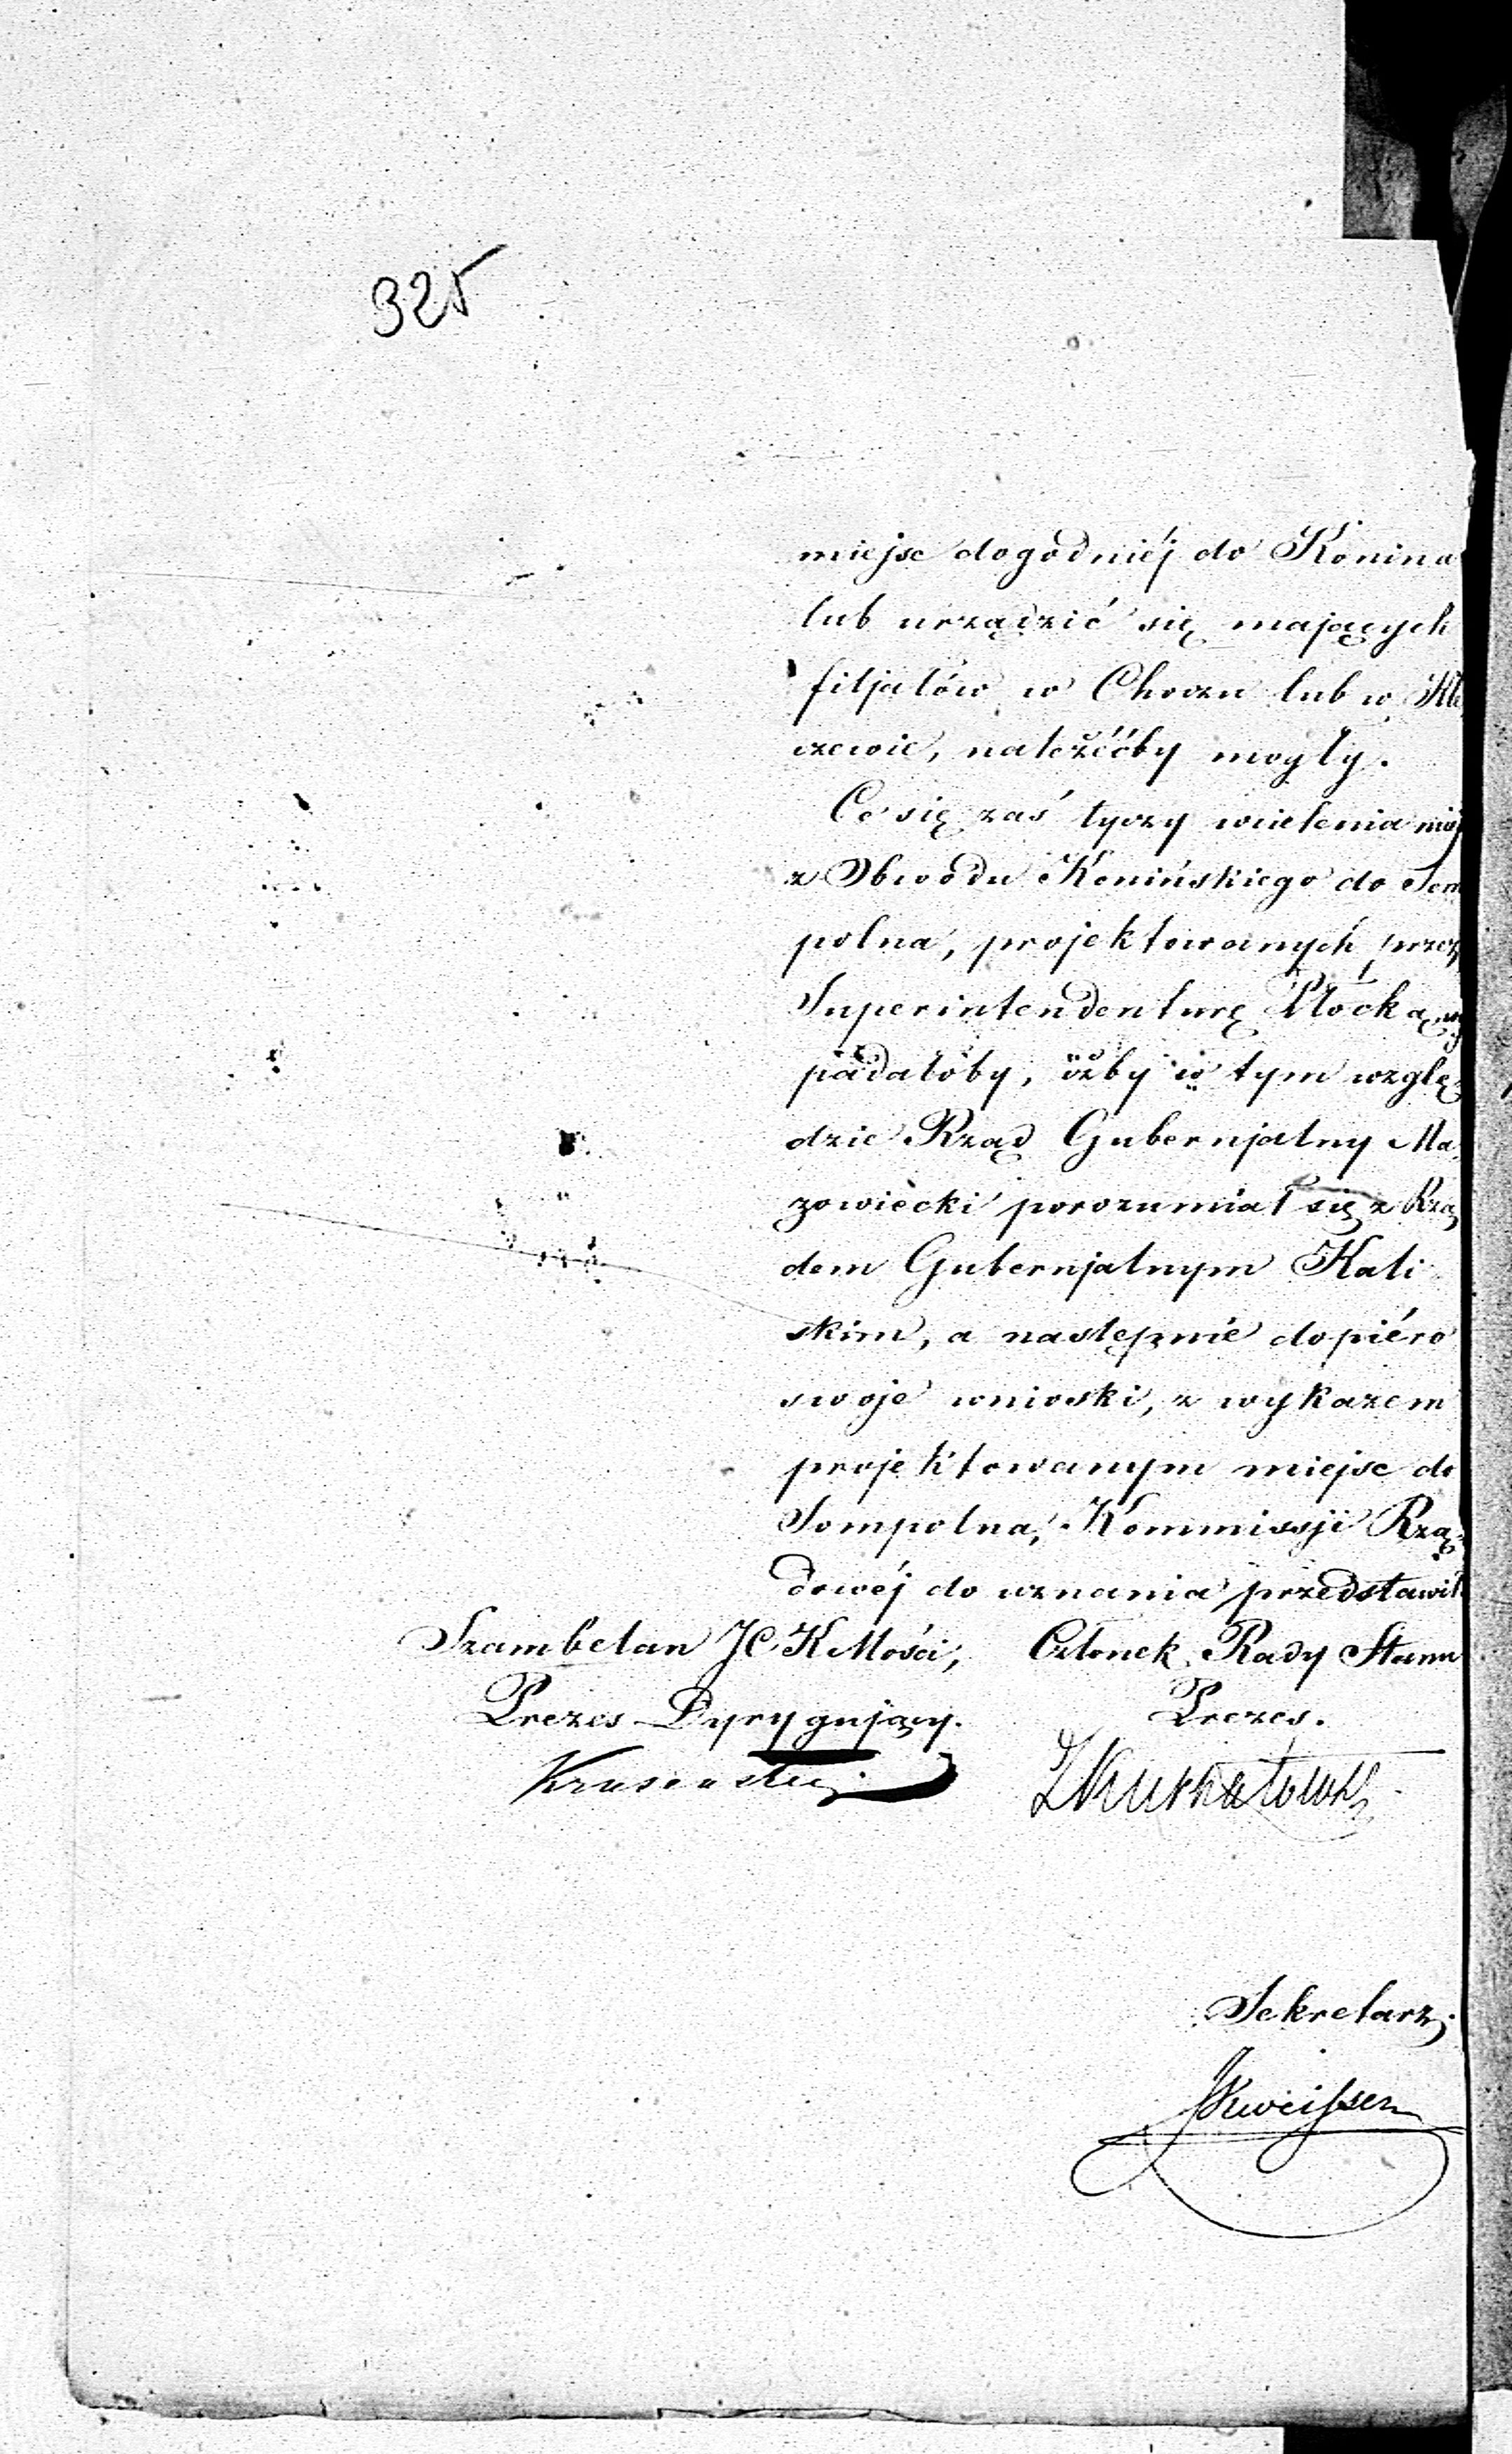 325
miejsc dogodniéj do Konina
lub urządzić się mających
filjałów w Choczu lub w Kle
czewie, należéćby mogły.
Co się zaś tyczy wcielenia miejsc
z Obwodu Konińskiego do Som
polna, projektowanych przez
Superintendenturę Płocką, wy
padałoby, ażby w tym wzglę
dzie Rząd Gubernjalny Ma
zowiecki porozumiał się z Rzą
dem Gubernjalnym Kali
skim, a następnie dopiéro
swoje wnioski, z wykazem
projektowanym miejsc do
Sompolna, Kommissji Rzą
dowéj do uznania przedstawił.
Szambelan JCKMości, Członek Rady Stanu
Prezes Dyrygujący. Prezes.
Krusenstern
Sekretarz.